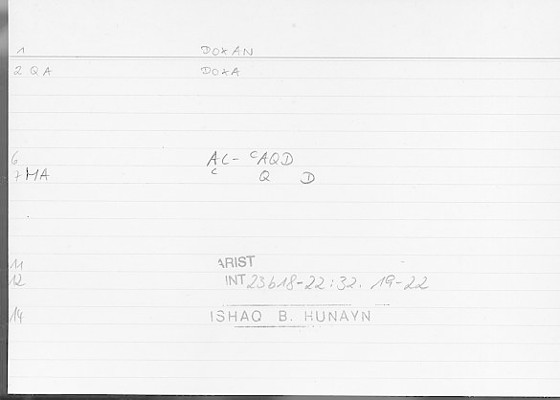 1 DOXAN
2 QA DOXA
6 AL- ʿAQD
7 MA C Q D
11 ARIST
12 INT 23b18-22:32. 19-22
14 ISHAQ B. HUNAYN